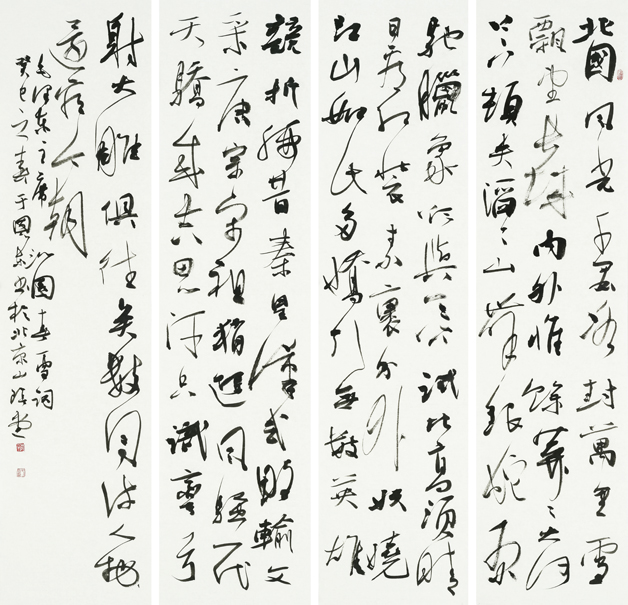 北國風光千里冰封萬里雪
飄望長城內外惟餘莽〻大河
上下頓失滔〻山舞銀蛇原
馳臘象欲與天公試比高須晴
日看紅裝素裹分外妖嬈
江山如此多嬌引無數英雄
競折腰惜秦皇漢武略輸文
采唐宗宋祖稍遜風騷一代
天驕成吉思汗只識彎弓
射大雕俱往矣數風流人物
還看今朝
毛澤東主席沁園春雪詞
癸巳之春于國書於北京山堂